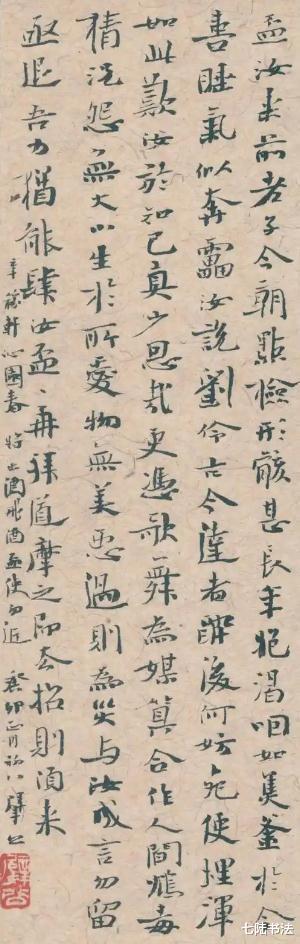 盃汝来前老子今朝點檢形骸甚長年抱渴咽如焦釜於今
喜睡氣似奔靁汝說劉伶古今達者醉後何妨死便埋渾
如此歎汝於知己真少恩哉更憑歌舞為媒算合作人間鴆毒
猜況怨無大小生於所愛物無美惡過則為災与汝成言勿留
亟退吾力猶能肆汝盃盃再拜道摩之即去招則須来
辛稼軒沁園春 將止酒戒酒盃使勿近 癸卯正月初八
七陆书法